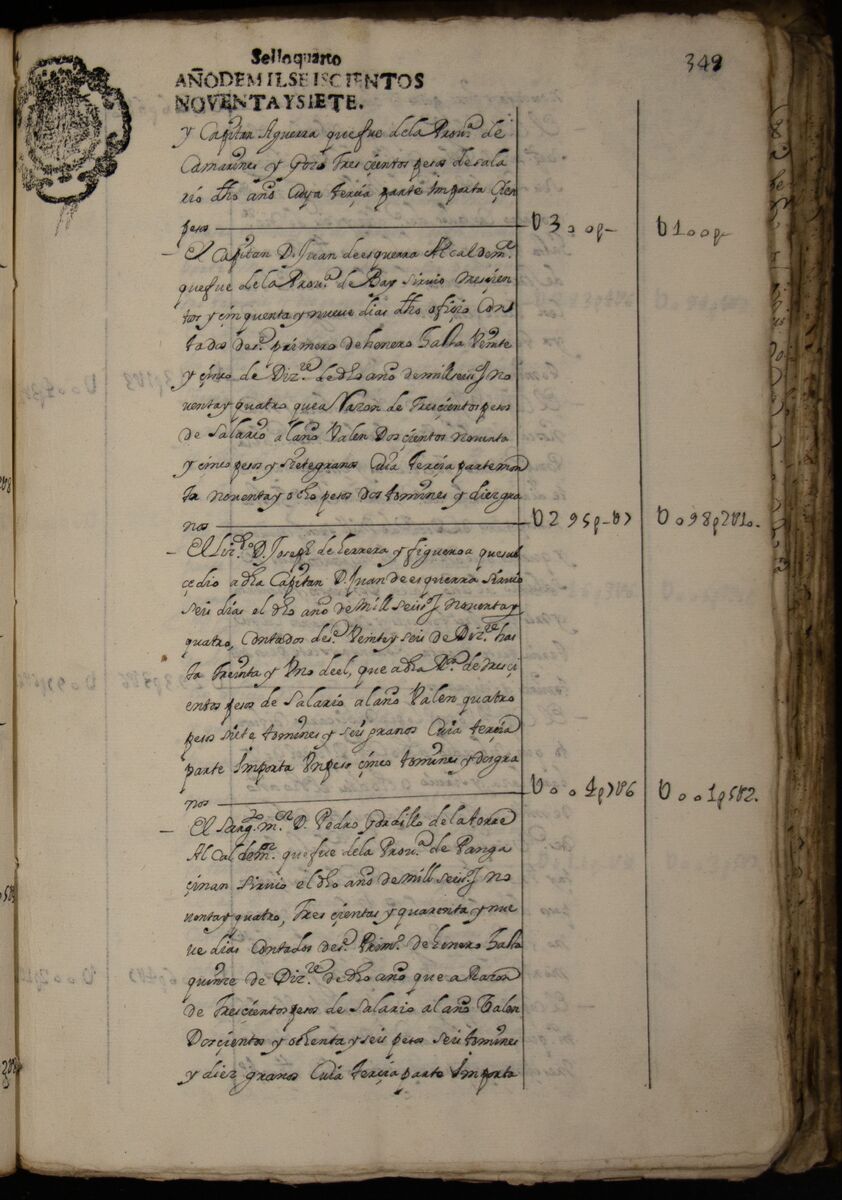 Sello quarto
349
AÑO DE MIL SEISCIENTOS
NOVENTA Y SIETE.
y Capitan aguerra que fue de la Prouᵃ de
Camarines y gozo tres cientos pesos de sala
rio dho año Cuya tercia parte Importa Cien
pesos U300p- U100p
- El Capitan D. Juan de esquerra Alcaldemʳ.
que fue de la Prouᵃ de Bay siruio trescien
tos y cinquenta y nueve dias dho ofiçio Con
tados desᵉ. primero de henero hasta Veinte
y çinco de Dizʳᵉ de dho año de mill seisᶜ no
venta y quatro que a Razon de trescientos pesos
de Salario al año Valen Dosçientos noventa
y cinco pesos y sietegranos Cuia terçia parte mon
ta noventa y ocho pesos dos tomines y diez gra
nos U295p-U7 U098p2U10.
- El Lizᵈᵒ D. Joseph de herrera y figueroa que sub
çedio a dho Capitan D. Juan de esquerra siruio
seis dias el dho año de Mill seisᶜ noventa y
quatro, Contados desᵉ Veinte y seis de Dizʳᵉ has
ta treinta y Uno de el, que a dha Rᵒⁿ de tresçi
entos pesos de Salario al año Valen quatro
pesos siete tomines y seis granos Cuia terçia
parte Importa Un peso çinco tomines y dos gra
nos U004p7U6 U001p5U2.
- El Sargᵗᵒ mᵒʳ D. Pedro Gordillo de la torre
Alcaldemʳ. que fue de la Prouᵃ de Panga
çinan siruio el dho año de mill seisᶜ no
venta y quatro, tres çientos y quarenta y nue
ue dias Contados desᵉ Primᵒ. de henero hasta
quinze de Dizʳᵉ de dho año que a Razon
de trescientos pesos de Salario al año Valen
Dosçientos y ochenta y seis pesos seis tomines
y diez granos Cuia terçia parte Importa